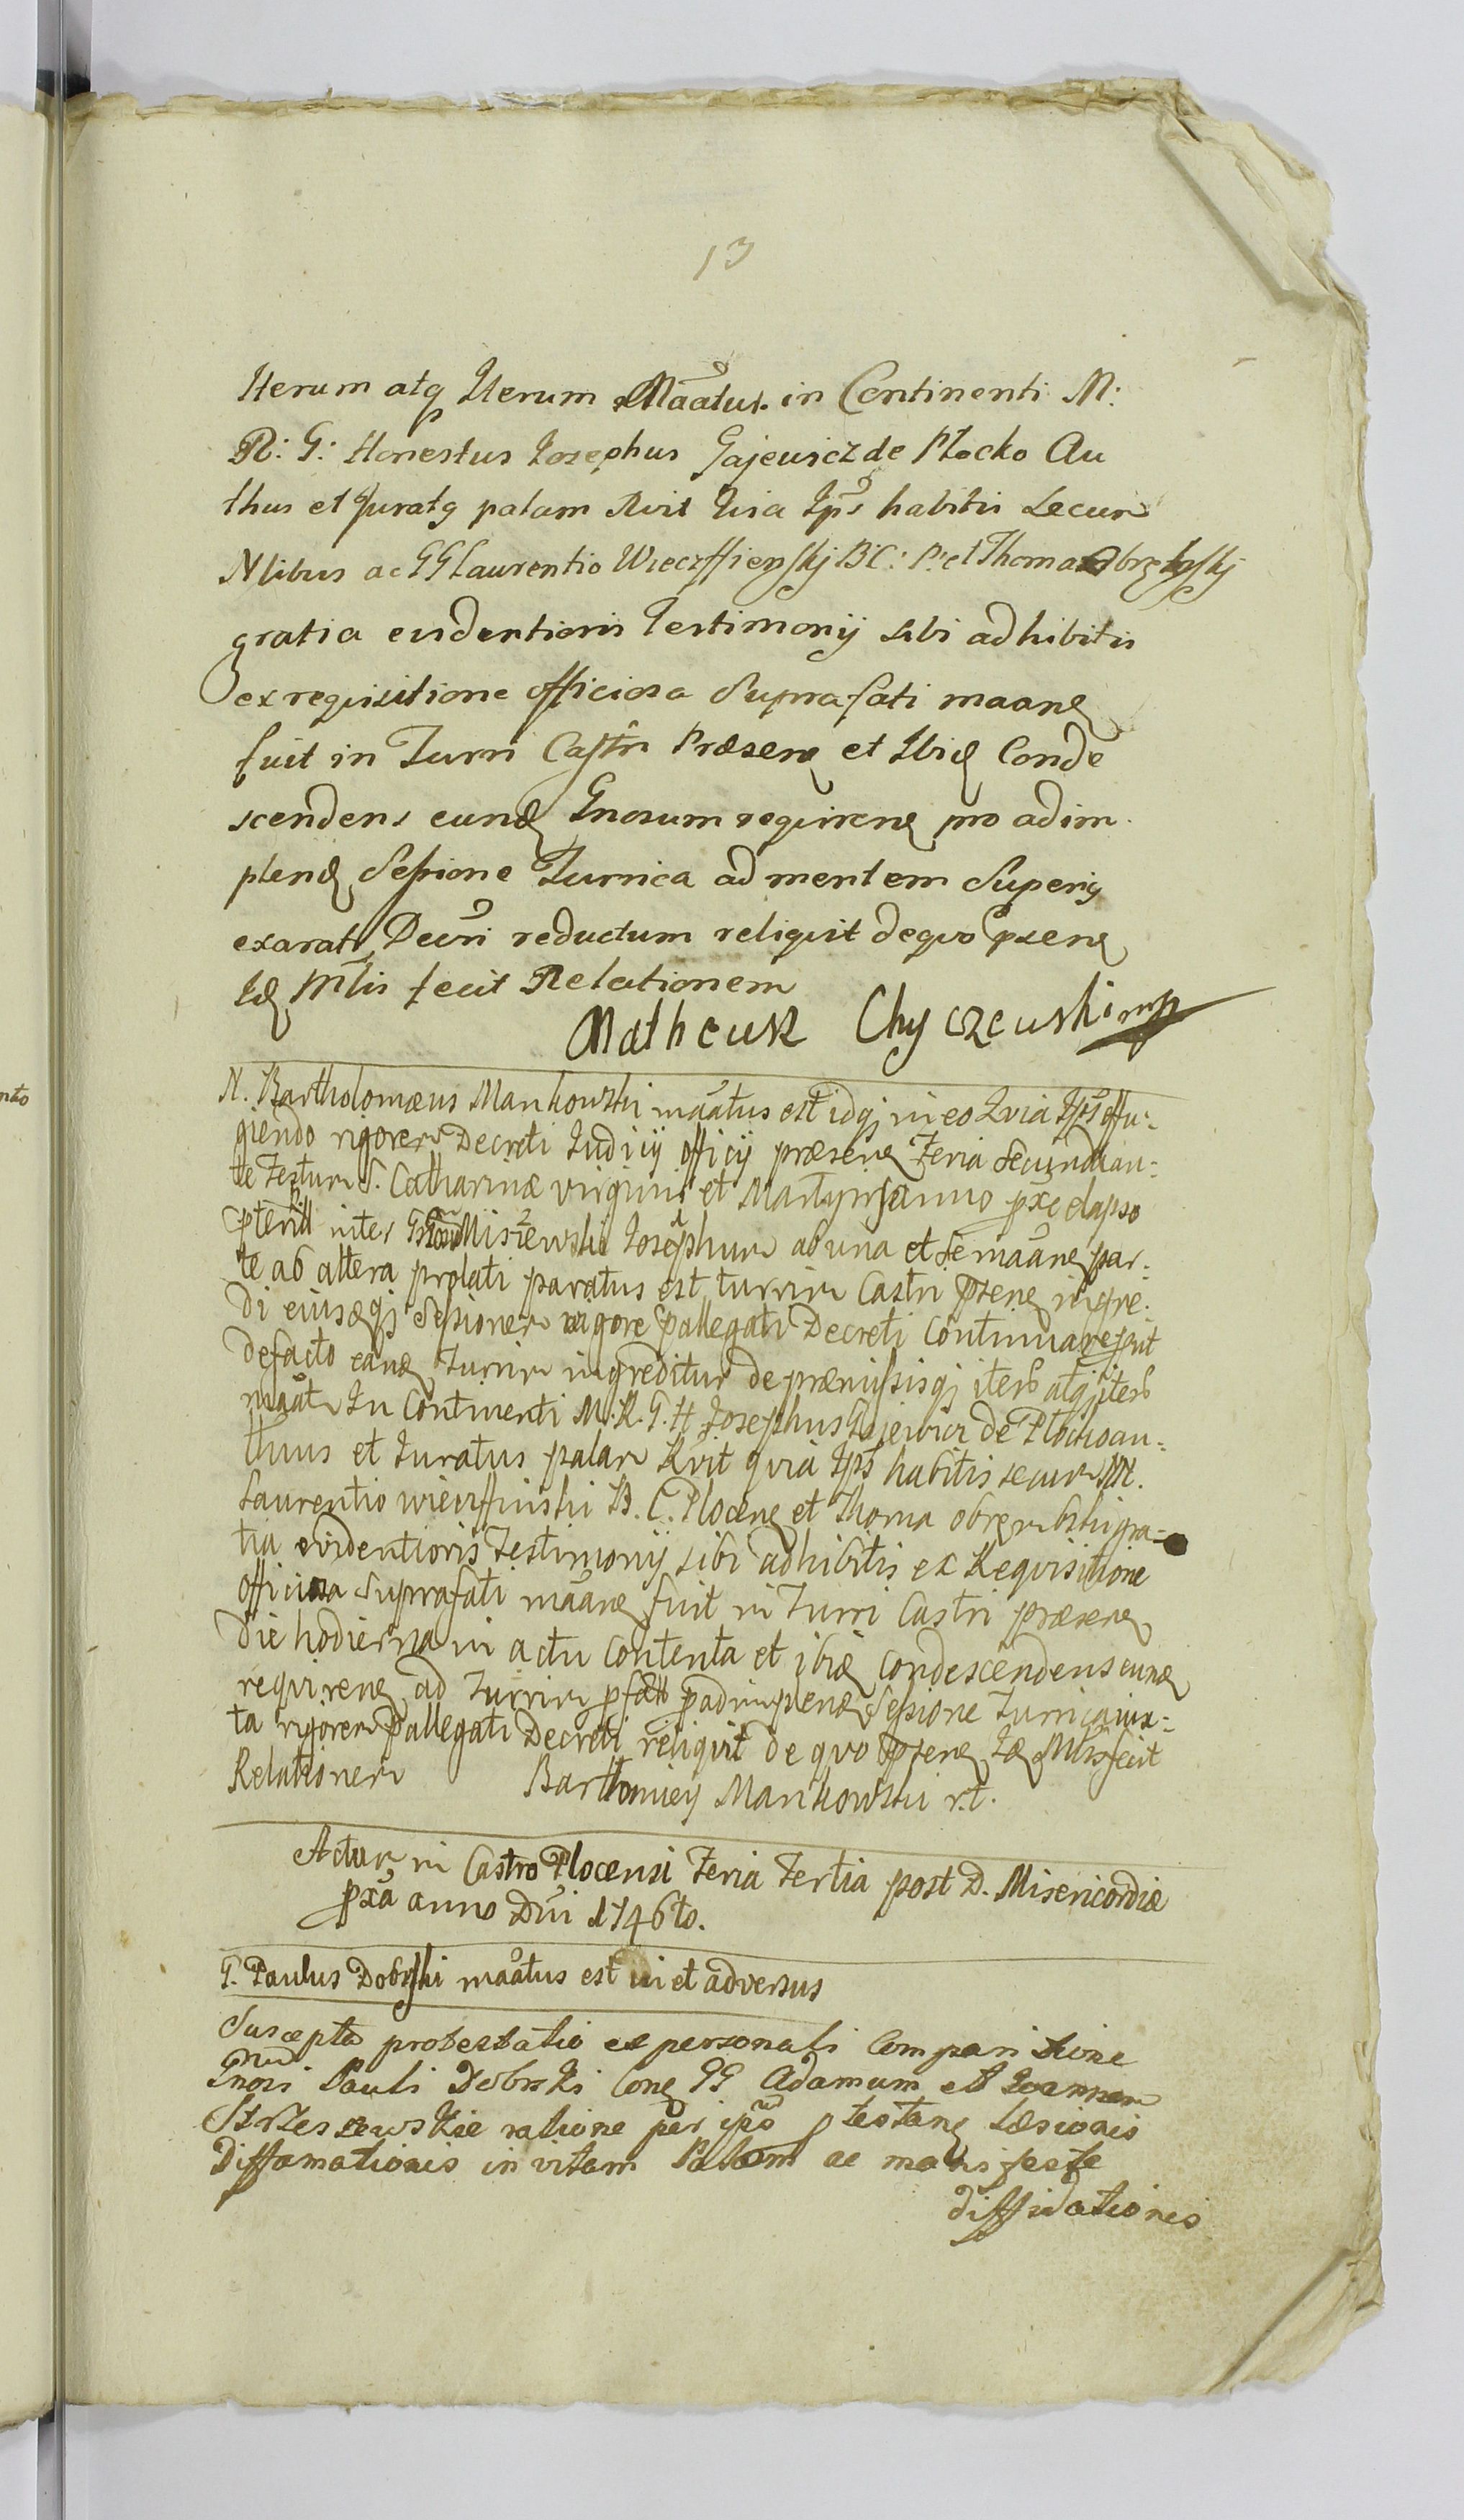 13
Iterum atq Iterum Maatus. in Continenti M:
R: G: Honestus Iosephus Gajewicz de Płocko Au
thus et Juratq palam Rvit Qvia Ips habitis secum
Nlibus ac GG Laurentio Wieczffienskj B: C: P: et Thoma Obrębskj
gratia evidentioris Testimonij sibi adhibitis
ex reqvisitione officiosa Suprafati maaneq
fuit in Turri Castri Præseneq et Ibid Conde
scendens eund Gnosum reqvireneq pro adim
plend Sessione Turrica ad mentem Superiq
exarati Decri reductum reliqvit de qvo pseneq
Id Mtlis fecit Relationem
Matheusz Chyczewski mp
N. Bartholomæus Mankowski maatus est idq in eo Qvia Ips effu-
giendo rigorem Decreti Iudicij officij præseneq Feria Secunda an-
te Festum S. Catharinæ virginis et Martyris anno pxe elapso
pterit inter Gnosum Miszewski Josephum ab una et se maaneq par-
te ab altera prolati paratus est turrim Castri pseneq ingre-
di eiusqq Sessionem vigore pallegati Decreti Continuare prit
defacto eand Turrim ingreditur de præmissisq iterb atq iterb
maatr In Continenti M. R. G. H Josephus Gajewicz de Płocko au-
thus et Iuratus palam Rvit qvia Ips habitis secum NN.
Laurentio wieczffinski B. C. Ploceneq et Thoma obrembski gra-
tia evidentioris Testimonij sibi adhibitis ex Reqvisitione
officiosa Suprafati maaneq fuit in Turri Castri præseneq
die hodierna in actu contenta et ibid condescendens eund
reqvireneq ad Turrim pfatt padimplend Sessione Turrica iux-
ta rigorem pallegati Decreti reliqvit de qvo pseneq Id Mtlis fecit
Relationem Bartłomiey Mankowski r.t.
Actum in Castro Plocensi Feria Tertia post D. Misericordiæ
pxa anno Dni 1746to.
G. Paulus Dobrski maatus est in et adversus
Suscepta protestatio ex personali Comparitione
Gnosi Pauli Dobrski Coneq GG Adamum et Ioannem
Strzeszewskie ratione per ips ptestaneq Læsionis
Diffamationis in vitam Palam ac manifeste
diffidationis